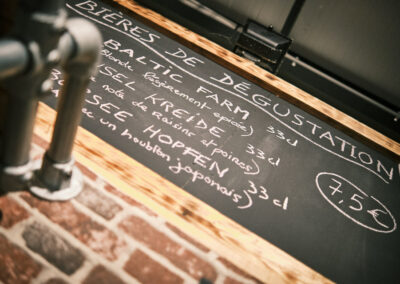 BIÈRES DE DÉGUSTATION
BALTIC FARM
Blonde légèrement epicée) 33cl
SEL KREIDE
note de raisins et poires) 33cl
SEE HOPFEN
ec un houblon japonais) 33cl
7,5€